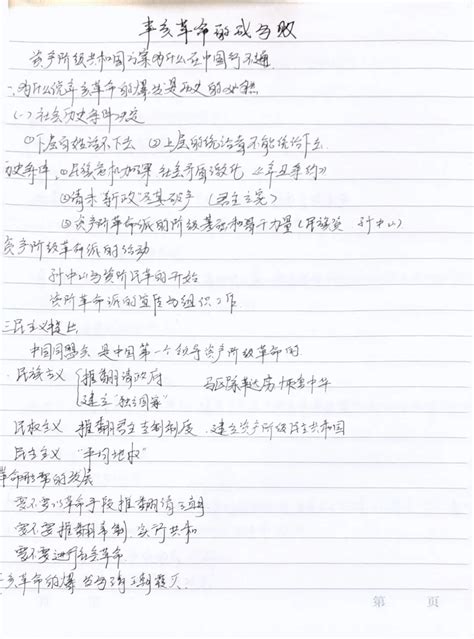 辛亥革命的成与败
资产阶级共和国方案为什么在中国行不通
一、为什么说辛亥革命的爆发是历史的必然
(一)社会历史条件决定
①下层百姓活不下去 ②上层的统治者不能统治下去
历史条件,①民族危机加深 社会矛盾激化 《辛丑条约》
②清末"新政"及其破产 (君主立宪)
③资产阶级革命派的阶级基础和骨干力量(民族资 孙中山)
资产阶级革命派的活动
孙中山与资阶民革的开始
资阶革命派的宣传与组织工作
三民主义提出
中国同盟会 是中国第一个领导资产阶级革命的
民族主义 推翻清政府 驱除鞑虏 恢复中华
建立"独立国家"
民权主义 推翻君主专制制度 建立资产阶级民主共和国
民生主义 "平均地权"
革命形势的发展
要不要以革命手段推翻清王朝
要不要推翻帝制 实行共和
要不要进行社会革命
辛亥革命的爆发与清王朝覆灭
第 页